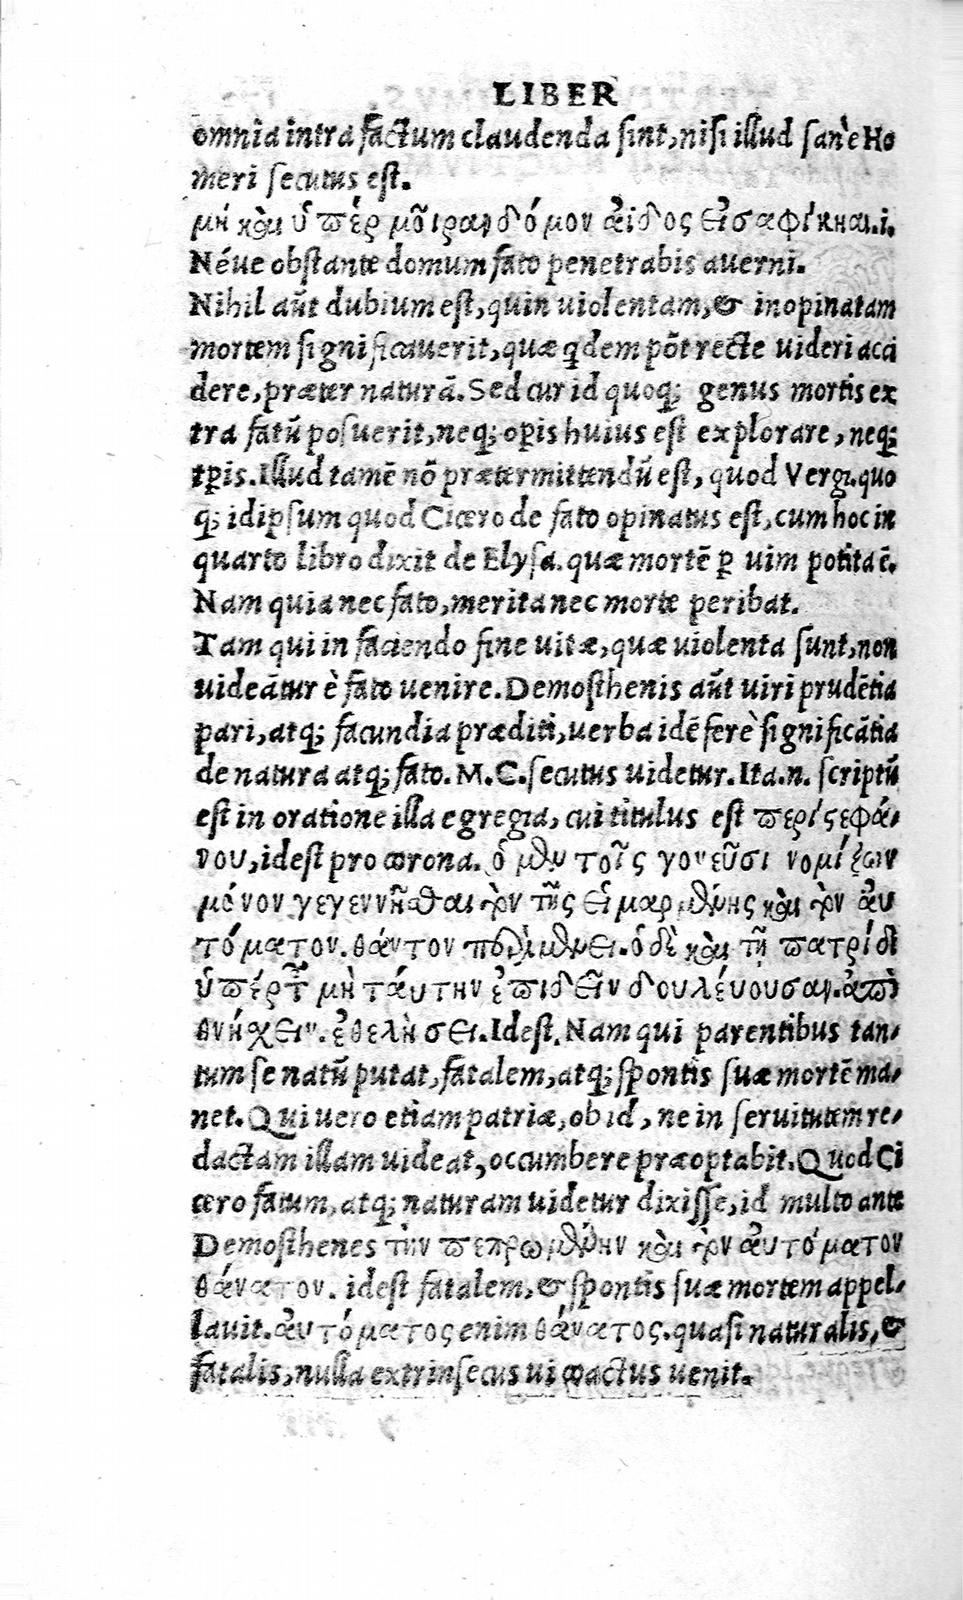 LIBER
omnia intra factum claudenda ſint, niſi illud ſanè Ho
meri ſecutus eſt.
μὴ καὶ ὑπὲρ μοῖραν δόμον ἄϊδος εἰσαφίκηαι.i.
Néue obſtante domum fato penetrabis auerni.
Nihil aūt dubium eſt, quin uiolentam, & inopinatam
mortem ſignificauerit, quæ qdem pōt recte uideri acci
dere, præter naturā. Sed cur id quoq; genus mortis ex
tra fatū poſuerit, neq; opis huius eſt explorare, neq;
tpis. Illud tamē nō prætermittendū eſt, quod Vergi. quo
q; idipſum quod Cicero de fato opinatus eſt, cum hoc in
quarto libro dixit de Elyſa. quæ mortē p uim potita ē.
Nam quia nec fato, merita nec morte peribat.
Tam qui in faciendo fine uitæ, quæ uiolenta ſunt, non
uideātur è fato uenire. Demoſthenis aūt uiri prudētia
pari, atq; facundia præditi, uerba idē ferè ſignificātia
de natura atq; fato. M. C. ſecutus uidetur. Ita .n. ſcriptū
eſt in oratione illa egregia, cui titulus eſt περὶ ςεφά-
νου, ideſt pro corona. ὁ μὲν τοῖς γονεῦσι νομίζων
μόνον γεγεννῆσθαι τὸν τῆς εἱμαρμένης καὶ τὸν ἀυ
τόματον. θάντον περιμένει. ὁ δὲ καὶ τῇ πατρίδι
ὑπὲρ τ͂ μὴ τάυτην ἐπιδεῖν δουλέυουσαν. ἀπο
θνήχειν. ἐθελὴσει. Ideſt. Nam qui parentibus tan-
tum ſe natū putat, fatalem, atq; ſpontis ſuæ mortē ma-
net. Qui uero etiam patriæ, ob id, ne in ſeruitutem re-
dactam illam uideat, occumbere præoptabit. Quod Ci
cero fatum, atq; naturam uidetur dixiſſe, id multo ante
Demoſthenes τὴν πεπρωμένην καὶ τὸν ἀυτόματον
θάνατον. ideſt fatalem, & ſpontis ſuæ mortem appel-
lauit. ἀυτόματος enim θάνατος. quaſi naturalis, &
fatalis, nulla extrinſecus ui coactus uenit.